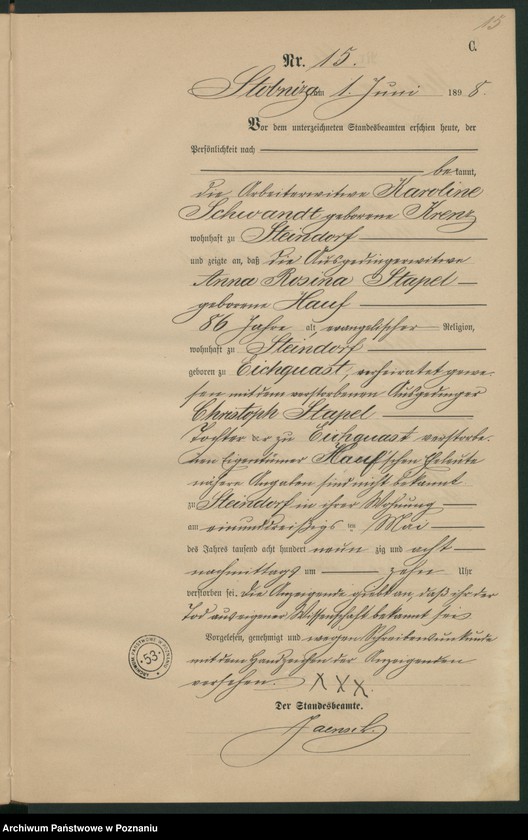 15
C.
Nr. 15.
Stobnica am 1. Juni 1898.
Vor dem unterzeichneten Standesbeamten erschien heute, der
Persönlichkeit nach
bekannt,
die Arbeiterwitwe Karoline
Schwandt geborene Krenz
wohnhaft zu Steindorf
und zeigte an, daß die Ausgedingerwitwe
Anna Rosina Stapel
geborene Hauf
86 Jahre alt, evangelischer Religion,
wohnhaft zu Steindorf
geboren zu Eichquast, verheiratet gewe-
sen mit dem verstorbenen Ausgedinger
Christoph Stapel
Tochter der zu Eichquast verstorbe-
nen Eigentümer Hauf'schen Eheleute
nähere Angaben sind nicht bekannt
zu Steindorf in ihrer Wohnung
am einunddreißigsten Mai
des Jahres tausend acht hundert neunzig und acht
nachmittags um zehn Uhr
verstorben sei. Die Anzeigende giebt an, daß ihr der
Tod aus eigener Wissenschaft bekannt sei
Vorgelesen, genehmigt und wegen Schreibensunkunde
mit dem Handzeichen der Anzeigenden
versehen. XXX.
Der Standesbeamte.
ARCHIWUM PAŃSTWOWE W POZNANIU
53
Archiwum Państwowe w Poznaniu